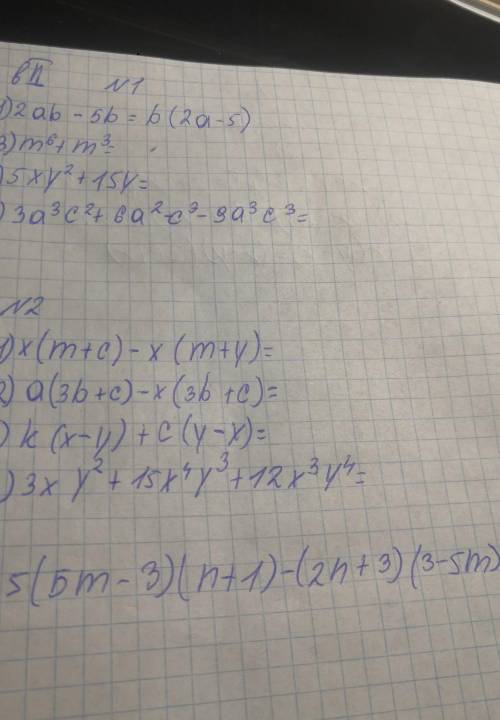 вII
№1
1) 2ab - 5b = b(2a-5)
3) m⁶ + m³ =
) 5xy² + 15y =
) 3a³c² + 6a²c³ - 9a³c³ =
№2
1) x(m+c) - x(m+y) =
2) a(3b+c) - x(3b+c) =
) k(x-y) + c(y-x) =
) 3xy² + 15x⁴y³ + 12x³y⁴ =
5(5m-3)(n+1) - (2n+3)(3-5m)